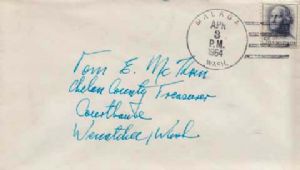 MALAGA
APR
3
P.M.
1964
WASH.
Tom E. McThorn
Chelan County Treasurer
Courthouse
Wenatchee, Wash